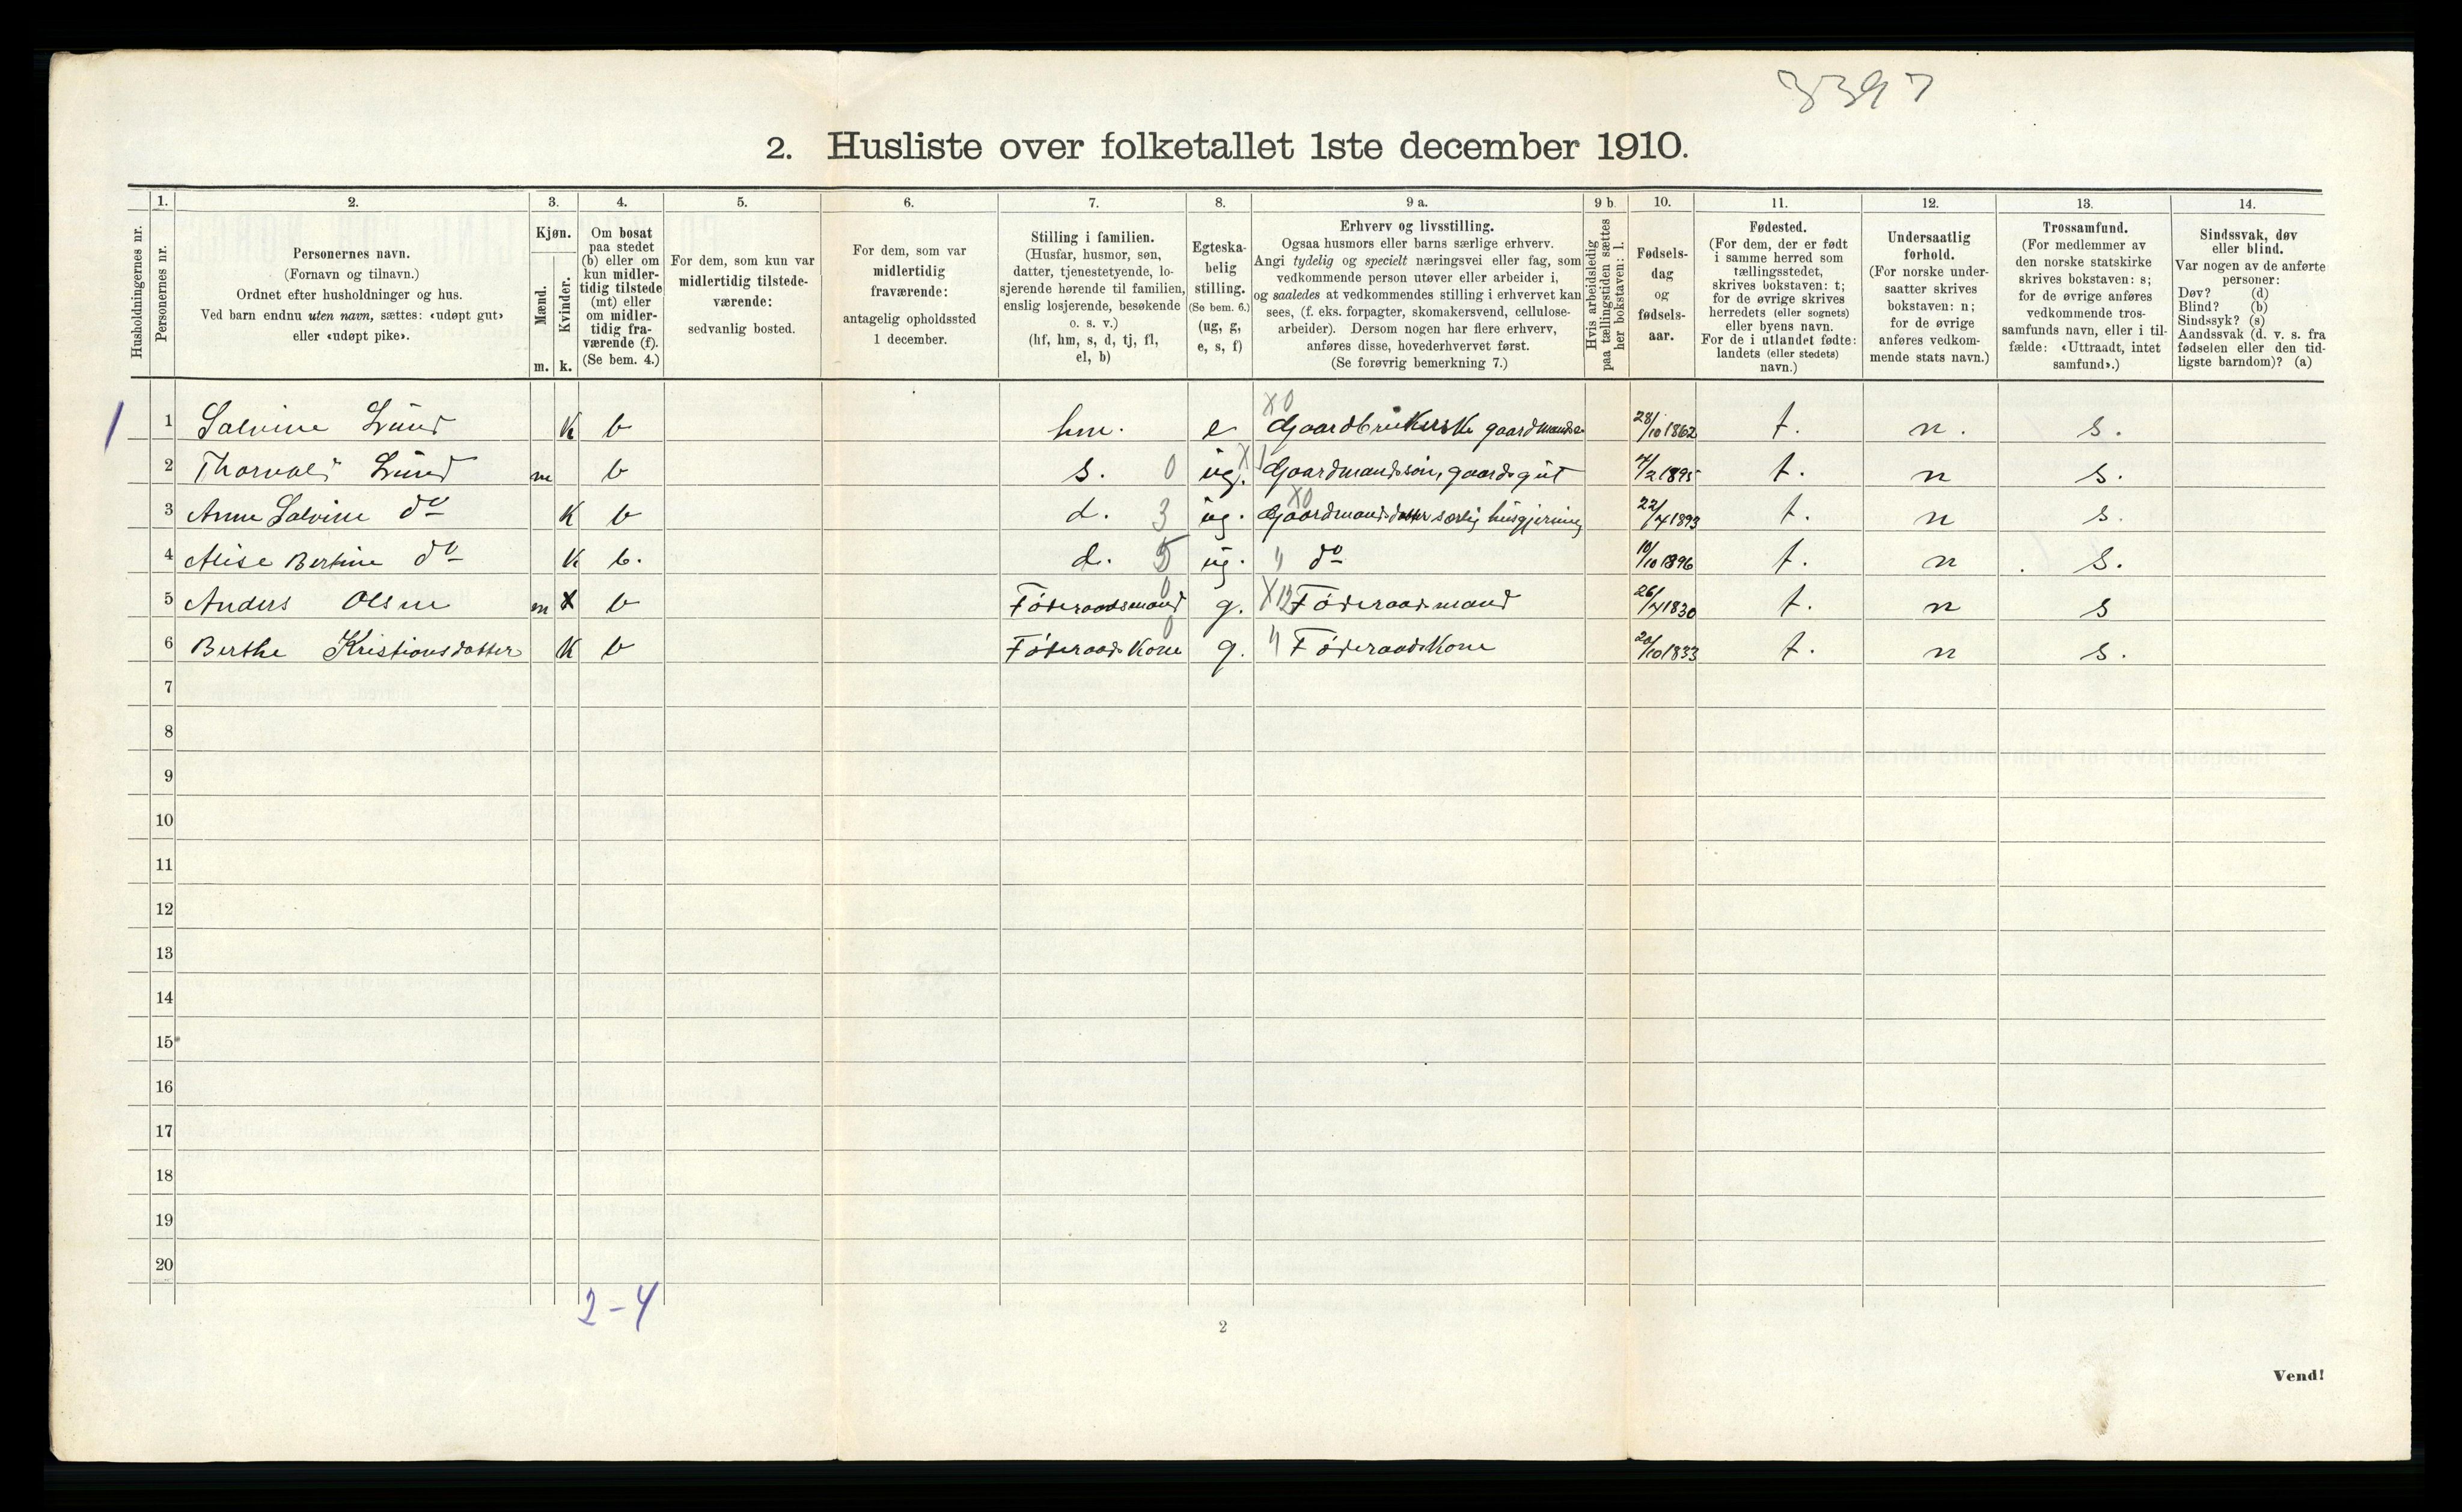 3397
2. Husliste over folketallet 1ste december 1910.
Husholdningernes nr.
1. Personernes nr.
2. Personernes navn. (Fornavn og tilnavn.) Ordnet efter husholdninger og hus. Ved barn endnu uten navn, sættes: «udøpt gut» eller «udøpt pike».
3. Kjøn. Mænd. m. Kvinder. k.
4. Om bosat paa stedet (b) eller om kun midlertidig tilstede (mt) eller om midlertidig fraværende (f). (Se bem. 4.)
5. For dem, som kun var midlertidig tilstedeværende: sedvanlig bosted.
6. For dem, som var midlertidig fraværende: antagelig opholdssted 1 december.
7. Stilling i familien. (Husfar, husmor, søn, datter, tjenestetyende, losjerende hørende til familien, enslig losjerende, besøkende o. s. v.) (hf, hm, s, d, tj, fl, el, b)
8. Egteskabelig stilling. (Se bem. 6.) (ug, g, e, s, f)
9 a. Erhverv og livsstilling. Ogsaa husmors eller barns særlige erhverv. Angi tydelig og specielt næringsvei eller fag, som vedkommende person utøver eller arbeider i, og saaledes at vedkommendes stilling i erhvervet kan sees, (f. eks. forpagter, skomakersvend, cellulosearbeider). Dersom nogen har flere erhverv, anføres disse, hovederhvervet først. (Se forøvrig bemerkning 7.)
9 b. Hvis arbeidsledig paa tællingstiden sættes her bokstaven: l.
10. Fødselsdag og fødselsaar.
11. Fødested. (For dem, der er født i samme herred som tællingsstedet, skrives bokstaven: t; for de øvrige skrives herredets (eller sognets) eller byens navn. For de i utlandet fødte: landets (eller stedets) navn.)
12. Undersaatlig forhold. (For norske undersaatter skrives bokstaven: n; for de øvrige anføres vedkommende stats navn.)
13. Trossamfund. (For medlemmer av den norske statskirke skrives bokstaven: s; for de øvrige anføres vedkommende trossamfunds navn, eller i tilfælde: «Uttraadt, intet samfund».)
14. Sindssvak, døv eller blind. Var nogen av de anførte personer: Døv? (d) Blind? (b) Sindssyk? (s) Aandssvak (d. v. s. fra fødselen eller den tidligste barndom)? (a)
1 1 Salvine Lund K b hm. e X0 Gaardbrukerske gaardmands e. 28/10 1862 t. n. s.
2 Thorvald Lund m b s. 0 ug. X1 Gaardmandssøn, gaardsgut 7/2 1895 t. n s.
3 Anne Salvine do K b d. 3 ug. X0 Gaardmandsdatter særlig husgjerning 22/4 1893 t. n s.
4 Alise Bertine do K b. d. 5 ug. " do 10/10 1896 t. n s.
5 Anders Olsen m b Føderaadsmand 0 g. X12 Føderaadmand 26/4 1830 t. n s
6 Berthe Kristiansdatter K b Føderaadskone 0 g. " Føderaadskone 20/10 1833 t. n s.
7
8
9
10
11
12
13
14
15
16
17
18
19
20
2-4
2
Vend!